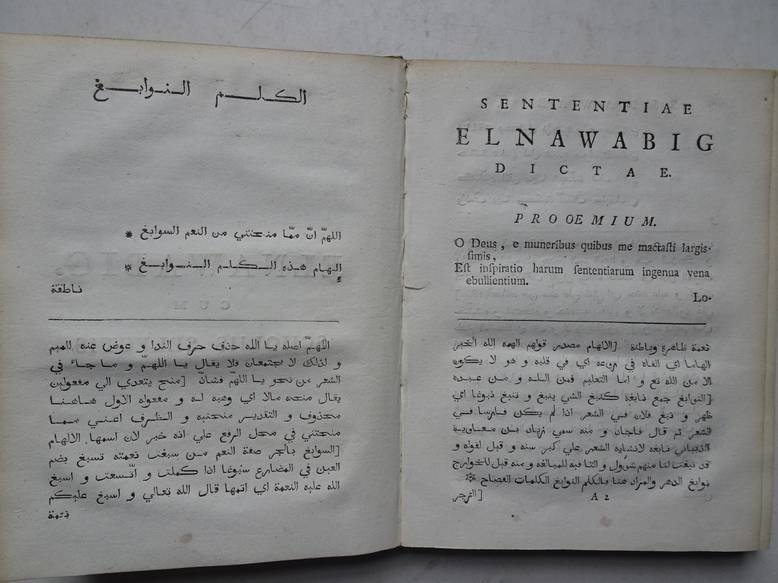 الكلم النوابغ
اللهمّ انّ ممّا منحتني من النعم السوابغ *
إلهام هذه الكلم النوابغ *
ناطقة
اللهمّ اصله يا الله حذف حرف الندا و عوض عنه الميم
و لذلك لا يجتمعان فلا يقال يا اللهمّ و ما جاء في
الشعر من نحو يا اللهمّ فشاذّ [منح يتعدي الي مفعولين
يقال منحه مالا اي وهبه له و مفعوله الاول هاهنا
محذوف و التقدير منحتنيه و الظرف اعني ممّا
منحتني في محل الرفع علي انه خبر لان اسمها الالهام
[السوابغ بالجر صفة النعم من سبغت نعمته تسبغ بضم
العين في المضارع سبوغا اذا كملت و اتّسعت و اسبغ
الله عليه النعمة اي اتمها قال الله تعالي و اسبغ عليكم
نعمة
SENTENTIAE
ELNAWABIG
DICTAE.
PROOEMIUM.
O Deus, e muneribus quibus me mactasti largis-
simis,
Est inspiratio harum sententiarum ingenua vena
ebullientium.
Lo-
نعمة ظاهرة وباطنة [الالهام مصدر قولهم الهمه الله الخير
الهاما اي القاه في روعه اي في قلبه و هو لا يكون
الا من الله تع و اما التعليم فمن الله و من عبده
[النوابغ جمع نابغة كنبغ الشي ينبغ و نبغ نبوغا اي
ظهر و نبغ فلان في الشعر اذا لم يكن فارسا في
الشعر ثم قال فاجان و منه سمي زياد بن معاوية
الذبياني نابغة لانشاية الشعر علي كبر سنه و قيل لقوله و
قد نبغت لنا منهم شوول و التا فيه للمبالغه و منه قيل للخوارج
نوابغ الدهر والمراد هنا بالكلم النوابغ الكلمات الفصاح
A 2